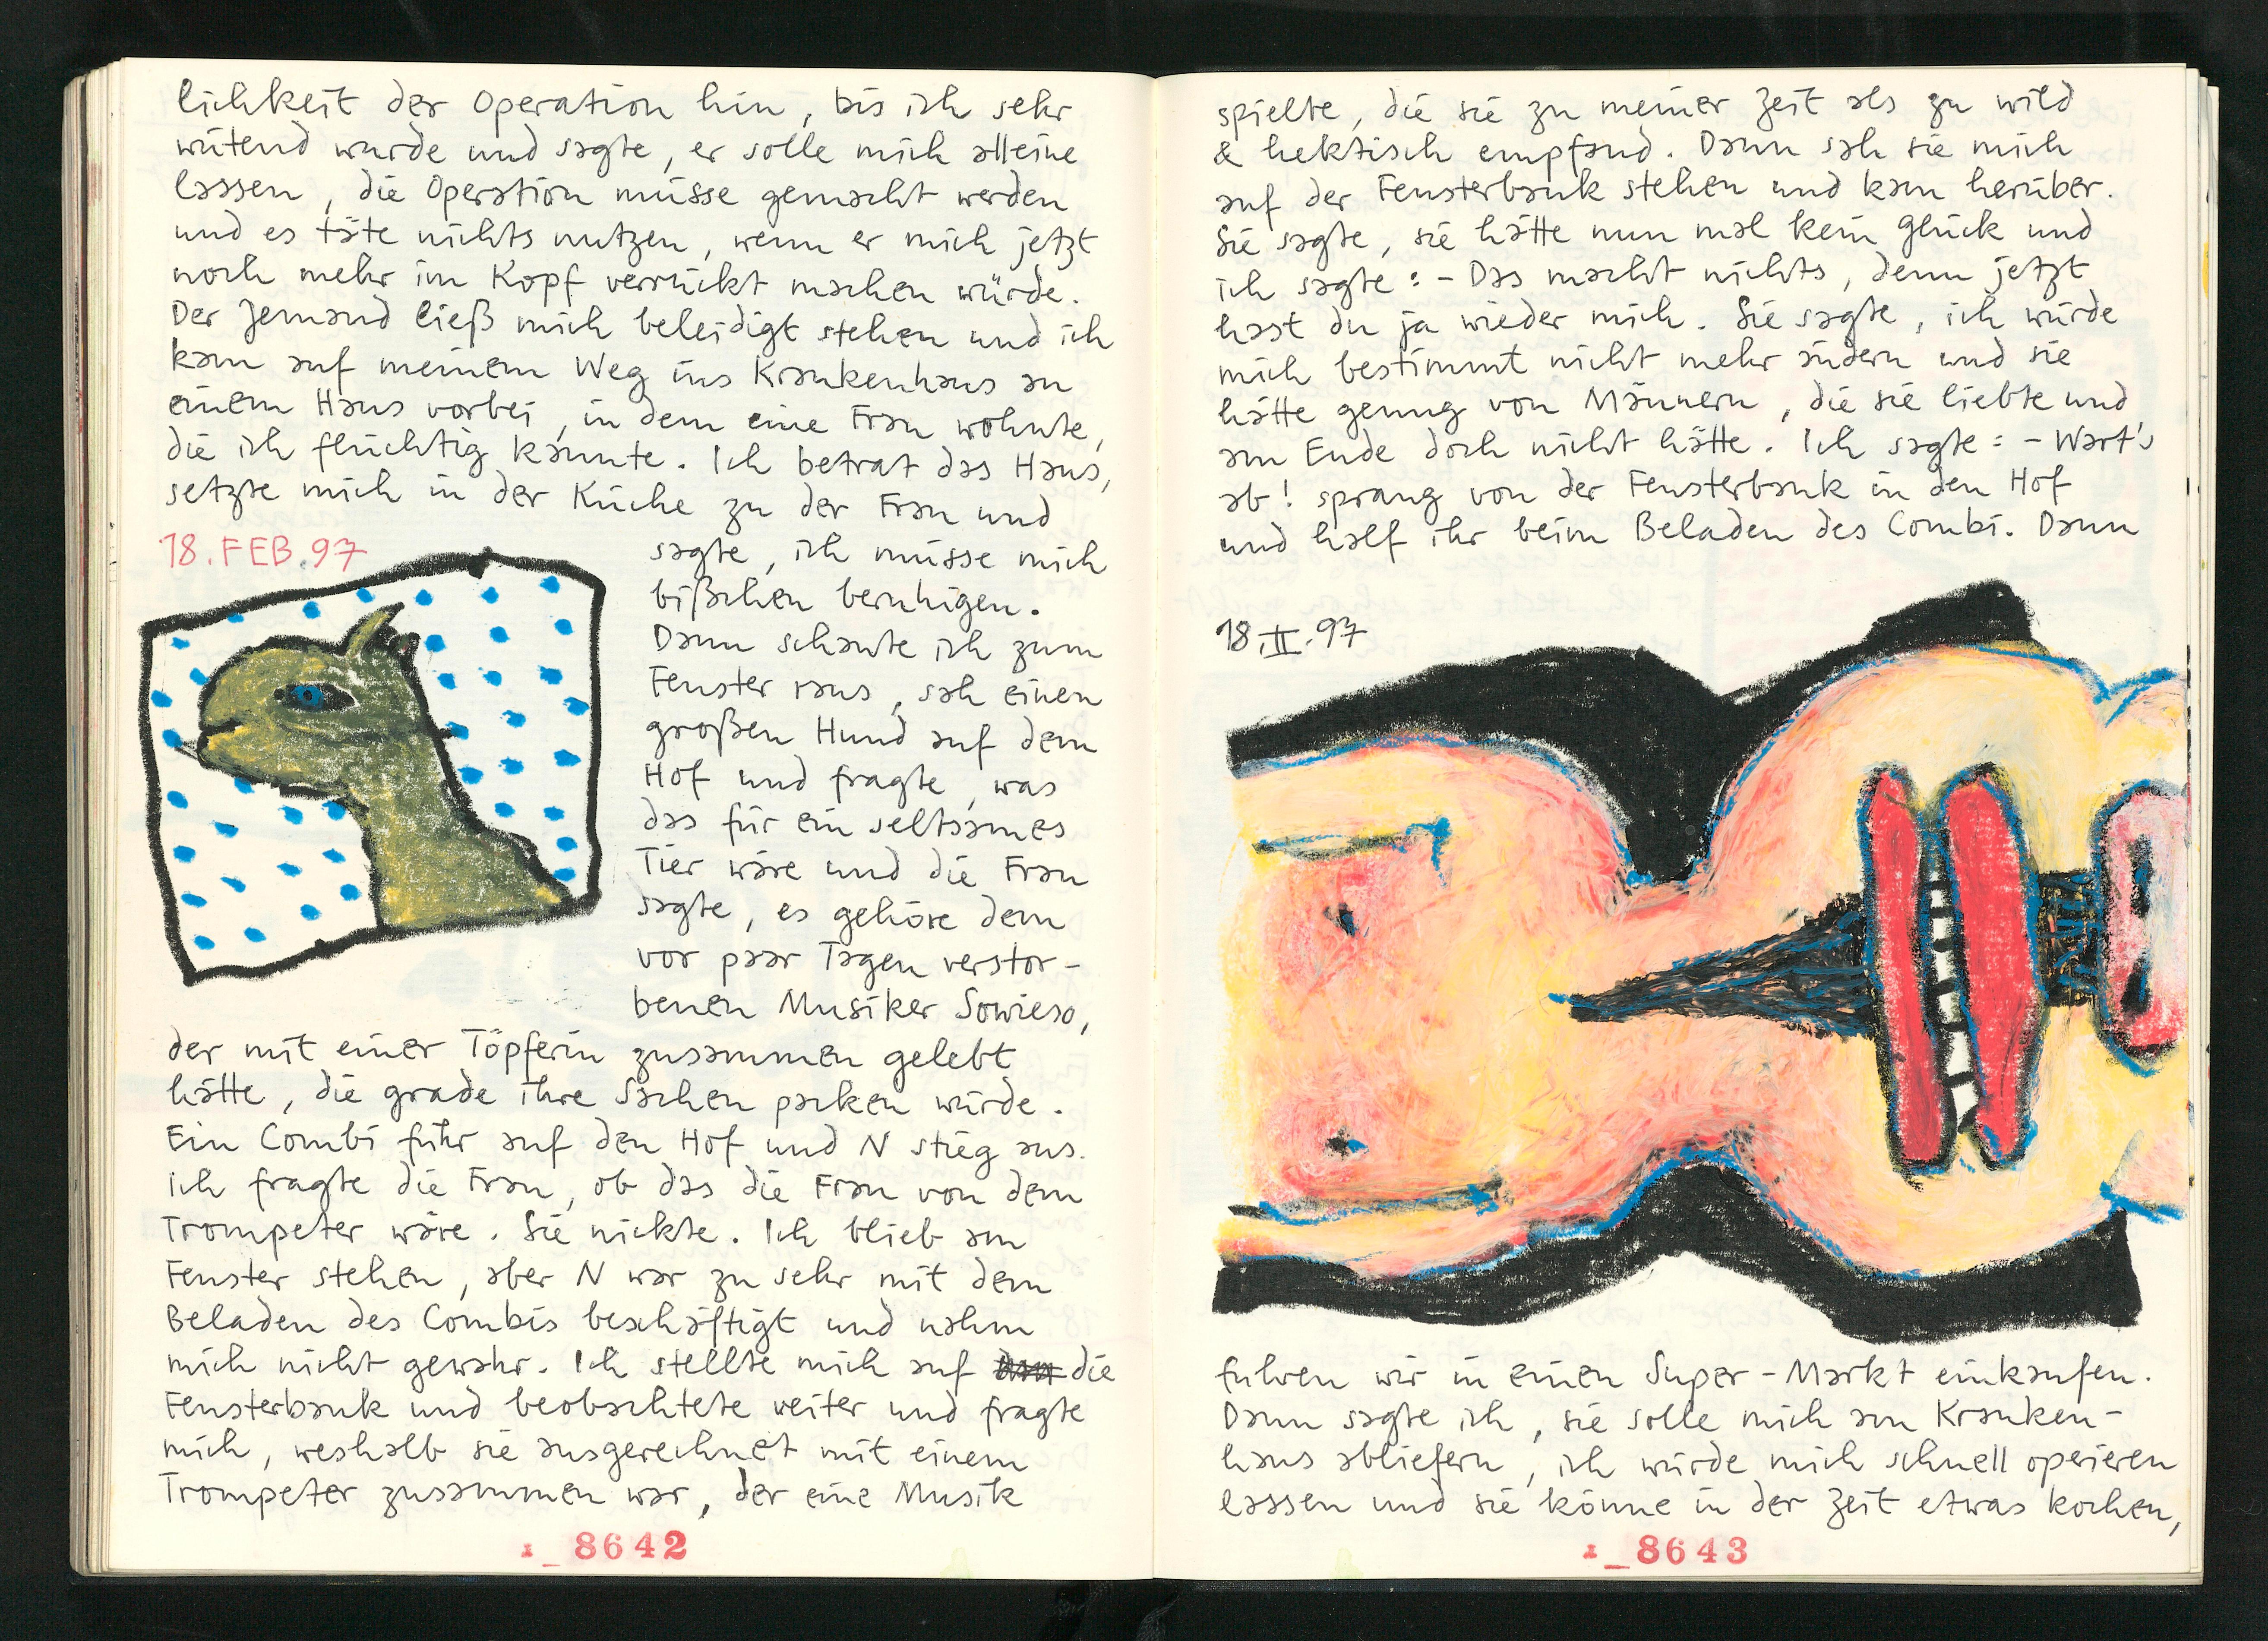 lichkeit der Operation hin, bis ich sehr
wütend wurde und sagte, er solle mich alleine
lassen, die Operation müsse gemacht werden
und es täte nichts nutzen, wenn er mich jetzt
noch mehr im Kopf verrückt machen würde.
Der Jemand ließ mich beleidigt stehen und ich
kam auf meinem Weg ins Krankenhaus an
einem Haus vorbei, in dem eine Frau wohnte,
die ich flüchtig kannte. Ich betrat das Haus,
setzte mich in der Küche zu der Frau und
18.FEB.97
sagte, ich müsse mich
bißchen beruhigen.
Dann schaute ich zum
Fenster raus, sah einen
großen Hund auf dem
Hof und fragte, was
das für ein seltsames
Tier wäre und die Frau
sagte, es gehöre dem
vor paar Tagen verstor-
benen Musiker Sowieso,
der mit einer Töpferin zusammen gelebt
hätte, die grade ihre Sachen packen würde.
Ein Combi fuhr auf den Hof und N stieg aus.
ich fragte die Frau, ob das die Frau von dem
Trompeter wäre. Sie nickte. Ich blieb am
Fenster stehen, aber N war zu sehr mit dem
Beladen des Combis beschäftigt und nahm
mich nicht gewahr. Ich stellte mich auf die
Fensterbank und beobachtete weiter und fragte
mich, weshalb sie ausgerechnet mit einem
Trompeter zusammen war, der eine Musik
1_8642
spielte, die sie zu meiner Zeit als zu wild
& hektisch empfand. Dann sah sie mich
auf der Fensterbank stehen und kam herüber.
Sie sagte, sie hätte nun mal kein Glück und
ich sagte: - Das macht nichts, denn jetzt
hast du ja wieder mich. Sie sagte, ich würde
mich bestimmt nicht mehr ändern und sie
hätte genug von Männern, die sie liebte und
am Ende doch nicht hätte. Ich sagte: - Wart's
ab! sprang von der Fensterbank in den Hof
und half ihr beim Beladen des Combi. Dann
18.II.97
fuhren wir in einen Super-Markt einkaufen.
Dann sagte ich, sie solle mich am Kranken-
haus abliefern, ich würde mich schnell operieren
lassen und sie könne in der Zeit etwas kochen,
1_8643